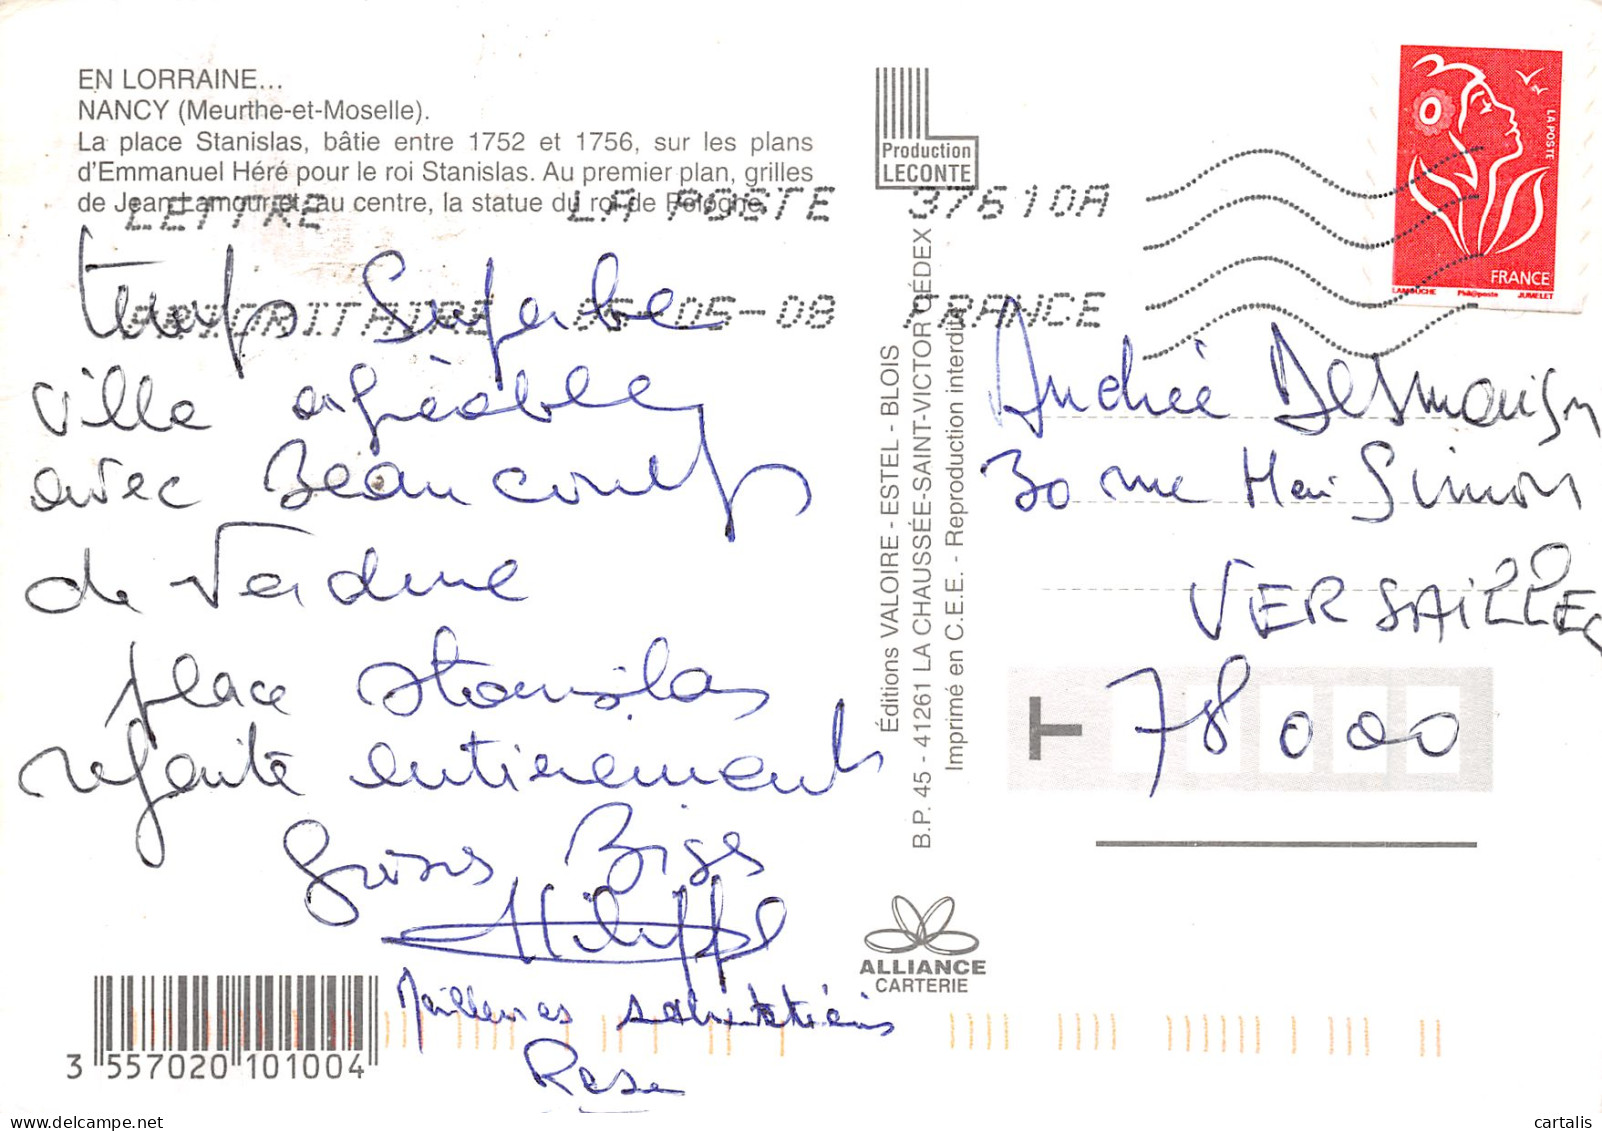 EN LORRAINE...
NANCY (Meurthe-et-Moselle).
La place Stanislas, bâtie entre 1752 et 1756, sur les plans
d'Emmanuel Héré pour le roi Stanislas. Au premier plan, grilles
de Jean Lamour et, au centre, la statue du roi de Pologne.
LETTRE LA POSTE 37610A
PRIORITAIRE 05-08 FRANCE
temps Superbe
ville agréable
avec Beaucoup
de Verdure
place Stanislas
refaite entièrement
Grosses Bises
Philippe
Meilleures salutations
Rose
3 557020 101004
Production
LECONTE
Éditions VALOIRE - ESTEL - BLOIS
B.P. 45 - 41261 LA CHAUSSÉE-SAINT-VICTOR CÉDEX
Imprimé en C.E.E. - Reproduction interdite
ALLIANCE
CARTERIE
LA POSTE
FRANCE
LAMOUCHE Phil@poste JUMELET
Andrée Desmaison
30 rue Henri Simon
VERSAILLES
T 78000
cartalis